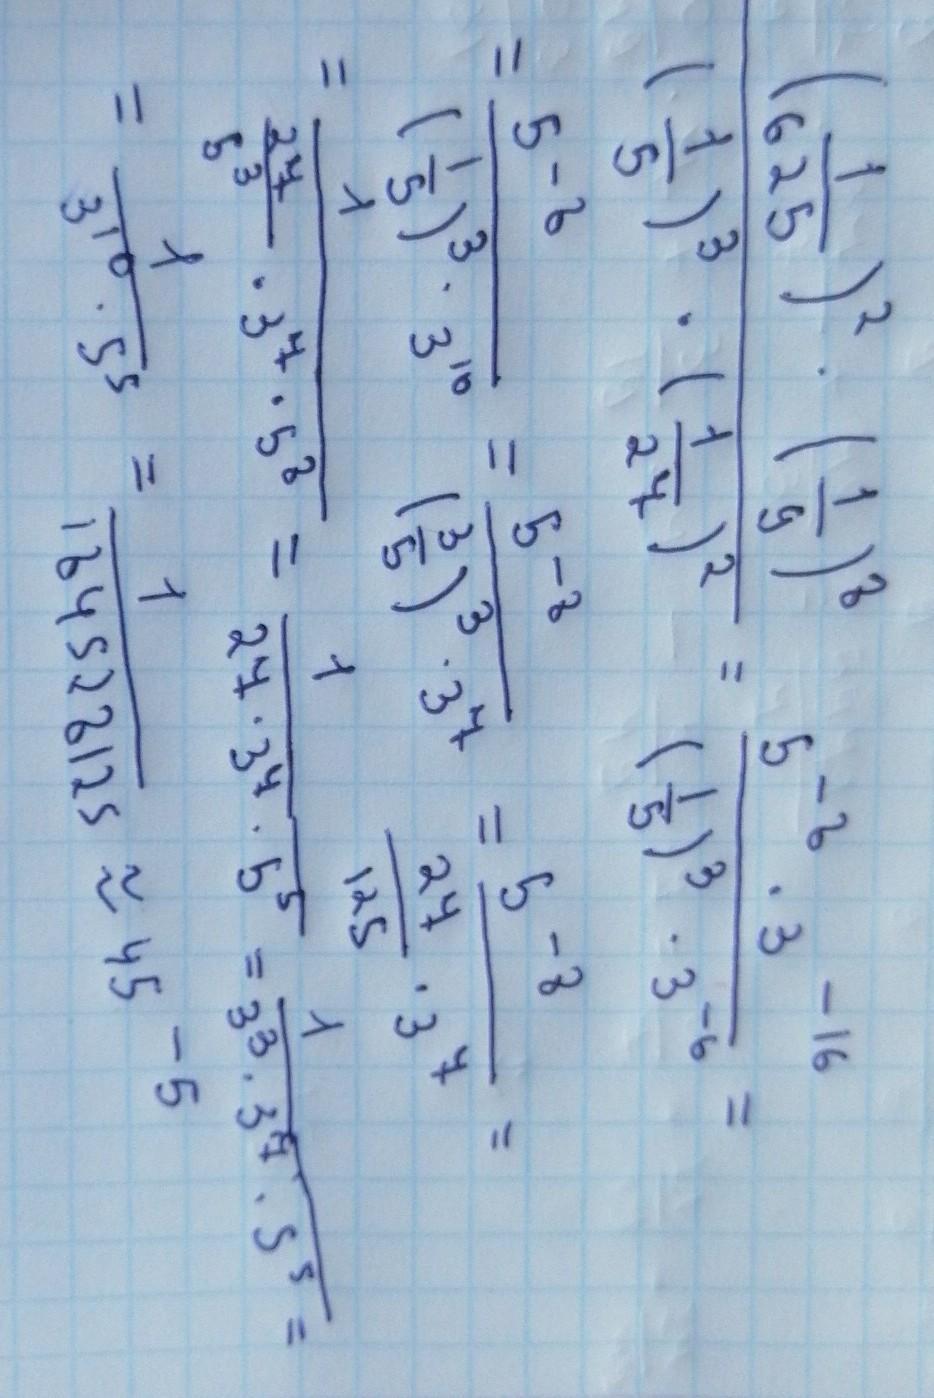 \frac{(\frac{1}{625})^2 \cdot (\frac{1}{9})^8}{(\frac{1}{5})^3 \cdot (\frac{1}{27})^2} = \frac{5^{-8} \cdot 3^{-16}}{(\frac{1}{5})^3 \cdot 3^{-6}} =
= \frac{5^{-8}}{(\frac{1}{5})^3 \cdot 3^{10}} = \frac{5^{-8}}{(\frac{3}{5})^3 \cdot 3^7} = \frac{5^{-8}}{\frac{27}{125} \cdot 3^7} =
= \frac{1}{\frac{27}{5^3} \cdot 3^7 \cdot 5^8} = \frac{1}{27 \cdot 3^7 \cdot 5^5} = \frac{1}{3^3 \cdot 3^7 \cdot 5^5} =
= \frac{1}{3^{10} \cdot 5^5} = \frac{1}{184528125} ≈ 45^{-5}